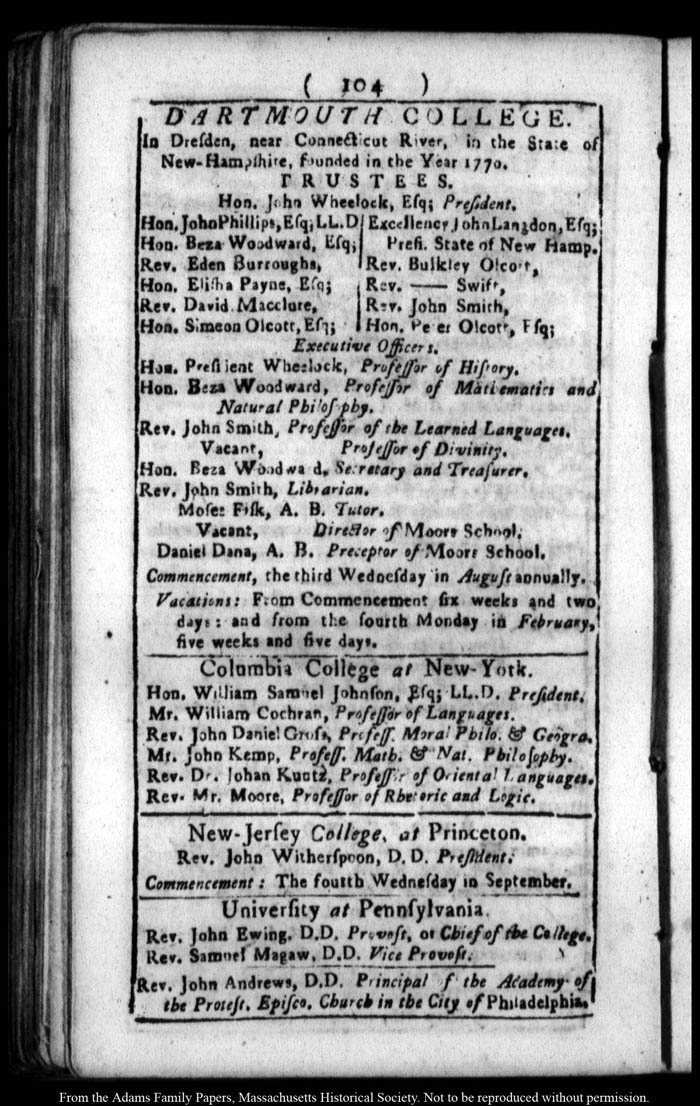 ( 104 )
DARTMOUTH COLLEGE.
In Dreſden, near Connecticut River, in the State of
New-Hampſhire, founded in the Year 1770.
TRUSTEES.
Hon. John Wheelock, Eſq; Preſident.
Hon. John Phillips, Eſq; LL.D
Hon. Beza Woodward, Eſq;
Rev. Eden Burroughs,
Hon. Eliſha Payne, Eſq;
Rev. David Macclure,
Hon. Simeon Olcott, Eſq;
Excellency John Langdon, Eſq;
Preſi. State of New Hamp.
Rev. Bulkley Olcott,
Rev. —— Swift,
Rev. John Smith,
Hon. Peter Olcott, Eſq;
Executive Officers.
Hon. Preſident Wheelock, Profeſſor of Hiſtory.
Hon. Beza Woodward, Profeſſor of Mathematics and
Natural Philoſophy.
Rev. John Smith, Profeſſor of the Learned Languages.
Vacant, Profeſſor of Divinity.
Hon. Beza Woodward, Secretary and Treaſurer.
Rev. John Smith, Librarian.
Moſes Fiſk, A. B. Tutor.
Vacant, Director of Moors School.
Daniel Dana, A. B. Preceptor of Moors School.
Commencement, the third Wedneſday in Auguſt annually.
Vacations: From Commencement ſix weeks and two
days: and from the fourth Monday in February,
five weeks and five days.
Columbia College at New-York.
Hon. William Samuel Johnſon, Eſq; LL.D. Preſident.
Mr. William Cochran, Profeſſor of Languages.
Rev. John Daniel Groſs, Profeſſ. Moral Philo. & Geogra.
Mr. John Kemp, Profeſſ. Math. & Nat. Philoſophy.
Rev. Dr. Johan Kuntz, Profeſſor of Oriental Languages.
Rev. Mr. Moore, Profeſſor of Rhetoric and Logic.
New-Jerſey College, at Princeton.
Rev. John Witherſpoon, D. D. Preſident.
Commencement: The fourth Wedneſday in September.
Univerſity at Pennſylvania.
Rev. John Ewing, D.D. Provoſt, or Chief of the College.
Rev. Samuel Magaw, D.D. Vice Provoſt.
Rev. John Andrews, D.D. Principal of the Academy of
the Proteſt. Epiſco. Church in the City of Philadelphia.
From the Adams Family Papers, Massachusetts Historical Society. Not to be reproduced without permission.